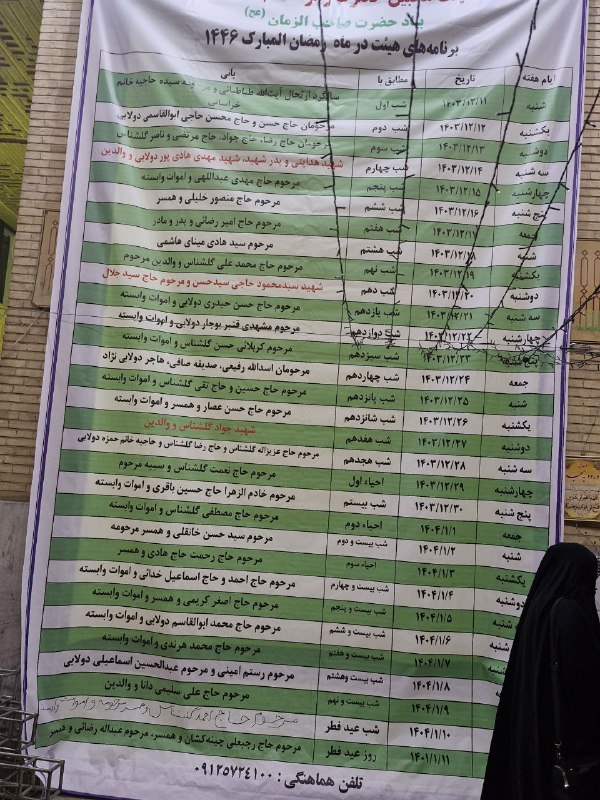 یاد حضرت صاحب الزمان (عج)
برنامه‌های هیئت در ماه رمضان المبارک ۱۴۴۶
ایام هفته تاریخ مطابق با بانی
شنبه ۱۴۰۳/۱۲/۱۱ شب اول سالگرد ارتحال آیت‌الله طباطبائی و مرحومه سیده حاجیه خانم خراسانی
یکشنبه ۱۴۰۳/۱۲/۱۲ شب دوم مرحومان حاج حسن و حاج محسن حاجی ابوالقاسمی دولابی
دوشنبه ۱۴۰۳/۱۲/۱۳ شب سوم مرحومان حاج رضا، حاج جواد، حاج مرتضی و ناصر گلشناس
سه شنبه ۱۴۰۳/۱۲/۱۴ شب چهارم شهید هدایتی و پدر شهید، شهید مهدی هادی پور دولابی و والدین
چهارشنبه ۱۴۰۳/۱۲/۱۵ شب پنجم مرحوم حاج مهدی عبداللهی و اموات وابسته
پنج شنبه ۱۴۰۳/۱۲/۱۶ شب ششم مرحوم حاج منصور خلیلی و همسر
جمعه ۱۴۰۳/۱۲/۱۷ شب هفتم مرحوم حاج امیر رضائی و پدر و مادر
شنبه ۱۴۰۳/۱۲/۱۸ شب هشتم مرحوم سید هادی مینای هاشمی
یکشنبه ۱۴۰۳/۱۲/۱۹ شب نهم مرحوم حاج محمد علی گلشناس و والدین مرحوم
دوشنبه ۱۴۰۳/۱۲/۲۰ شب دهم شهید سیدمحمود حاجی سیدحسن و مرحوم حاج سید جلال
سه شنبه ۱۴۰۳/۱۲/۲۱ شب یازدهم مرحوم حاج حسن حیدری دولابی و اموات وابسته
چهارشنبه ۱۴۰۳/۱۲/۲۲ شب دوازدهم مرحوم مشهدی قنبر بوجار دولابی و اموات وابسته
پنج شنبه ۱۴۰۳/۱۲/۲۳ شب سیزدهم مرحوم کربلائی حسن گلشناس و اموات وابسته
جمعه ۱۴۰۳/۱۲/۲۴ شب چهاردهم مرحومان اسدالله رفیعی، صدیقه صافی، هاجر دولابی نژاد
شنبه ۱۴۰۳/۱۲/۲۵ شب پانزدهم مرحوم حاج حسین و حاج تقی گلشناس و اموات وابسته
یکشنبه ۱۴۰۳/۱۲/۲۶ شب شانزدهم مرحوم حاج حسن عصار و همسر و اموات وابسته
دوشنبه ۱۴۰۳/۱۲/۲۷ شب هفدهم شهید جواد گلشناس و والدین
سه شنبه ۱۴۰۳/۱۲/۲۸ شب هجدهم مرحوم حاج عزیزاله گلشناس و حاج رضا گلشناس و حاجیه خانم حمزه دولابی
چهارشنبه ۱۴۰۳/۱۲/۲۹ احیاء اول مرحوم حاج نعمت گلشناس و سبیبه مرحوم
پنج شنبه ۱۴۰۳/۱۲/۳۰ شب بیستم مرحوم خادم الزهرا حاج حسین باقری و اموات وابسته
جمعه ۱۴۰۴/۱/۱ احیاء دوم مرحوم حاج مصطفی گلشناس و اموات وابسته
شنبه ۱۴۰۴/۱/۲ شب بیست و دوم مرحوم سید حسن خانقلی و همسر مرحومه
یکشنبه ۱۴۰۴/۱/۳ احیاء سوم مرحوم حاج رحمت حاج هادی و همسر
دوشنبه ۱۴۰۴/۱/۴ شب بیست و چهارم مرحوم حاج احمد و حاج اسماعیل خدائی و اموات وابسته
۱۴۰۴/۱/۵ شب بیست و پنجم مرحوم حاج اصغر کریمی و همسر و اموات وابسته
۱۴۰۴/۱/۶ شب بیست و ششم مرحوم حاج محمد ابوالقاسم دولابی و اموات وابسته
۱۴۰۴/۱/۷ شب بیست و هفتم مرحوم حاج محمد هرندی و اموات وابسته
۱۴۰۴/۱/۸ شب بیست وهشتم مرحوم رستم امینی و مرحوم عبدالحسین اسماعیلی دولابی
۱۴۰۴/۱/۹ شب بیست و نهم مرحوم حاج علی سلیمی دانا و والدین
۱۴۰۴/۱/۱۰ شب عید فطر مرحوم حاج احمد گلشناس و همسر مرحومه و اموات وابسته
۱۴۰۱/۱/۱۱ روز عید فطر مرحوم حاج رجبعلی چینه‌کشان و همسر، مرحوم عبداله رضائی و همسر
تلفن هماهنگی : ۰۹۱۲۵۷۲۴۱۰۰